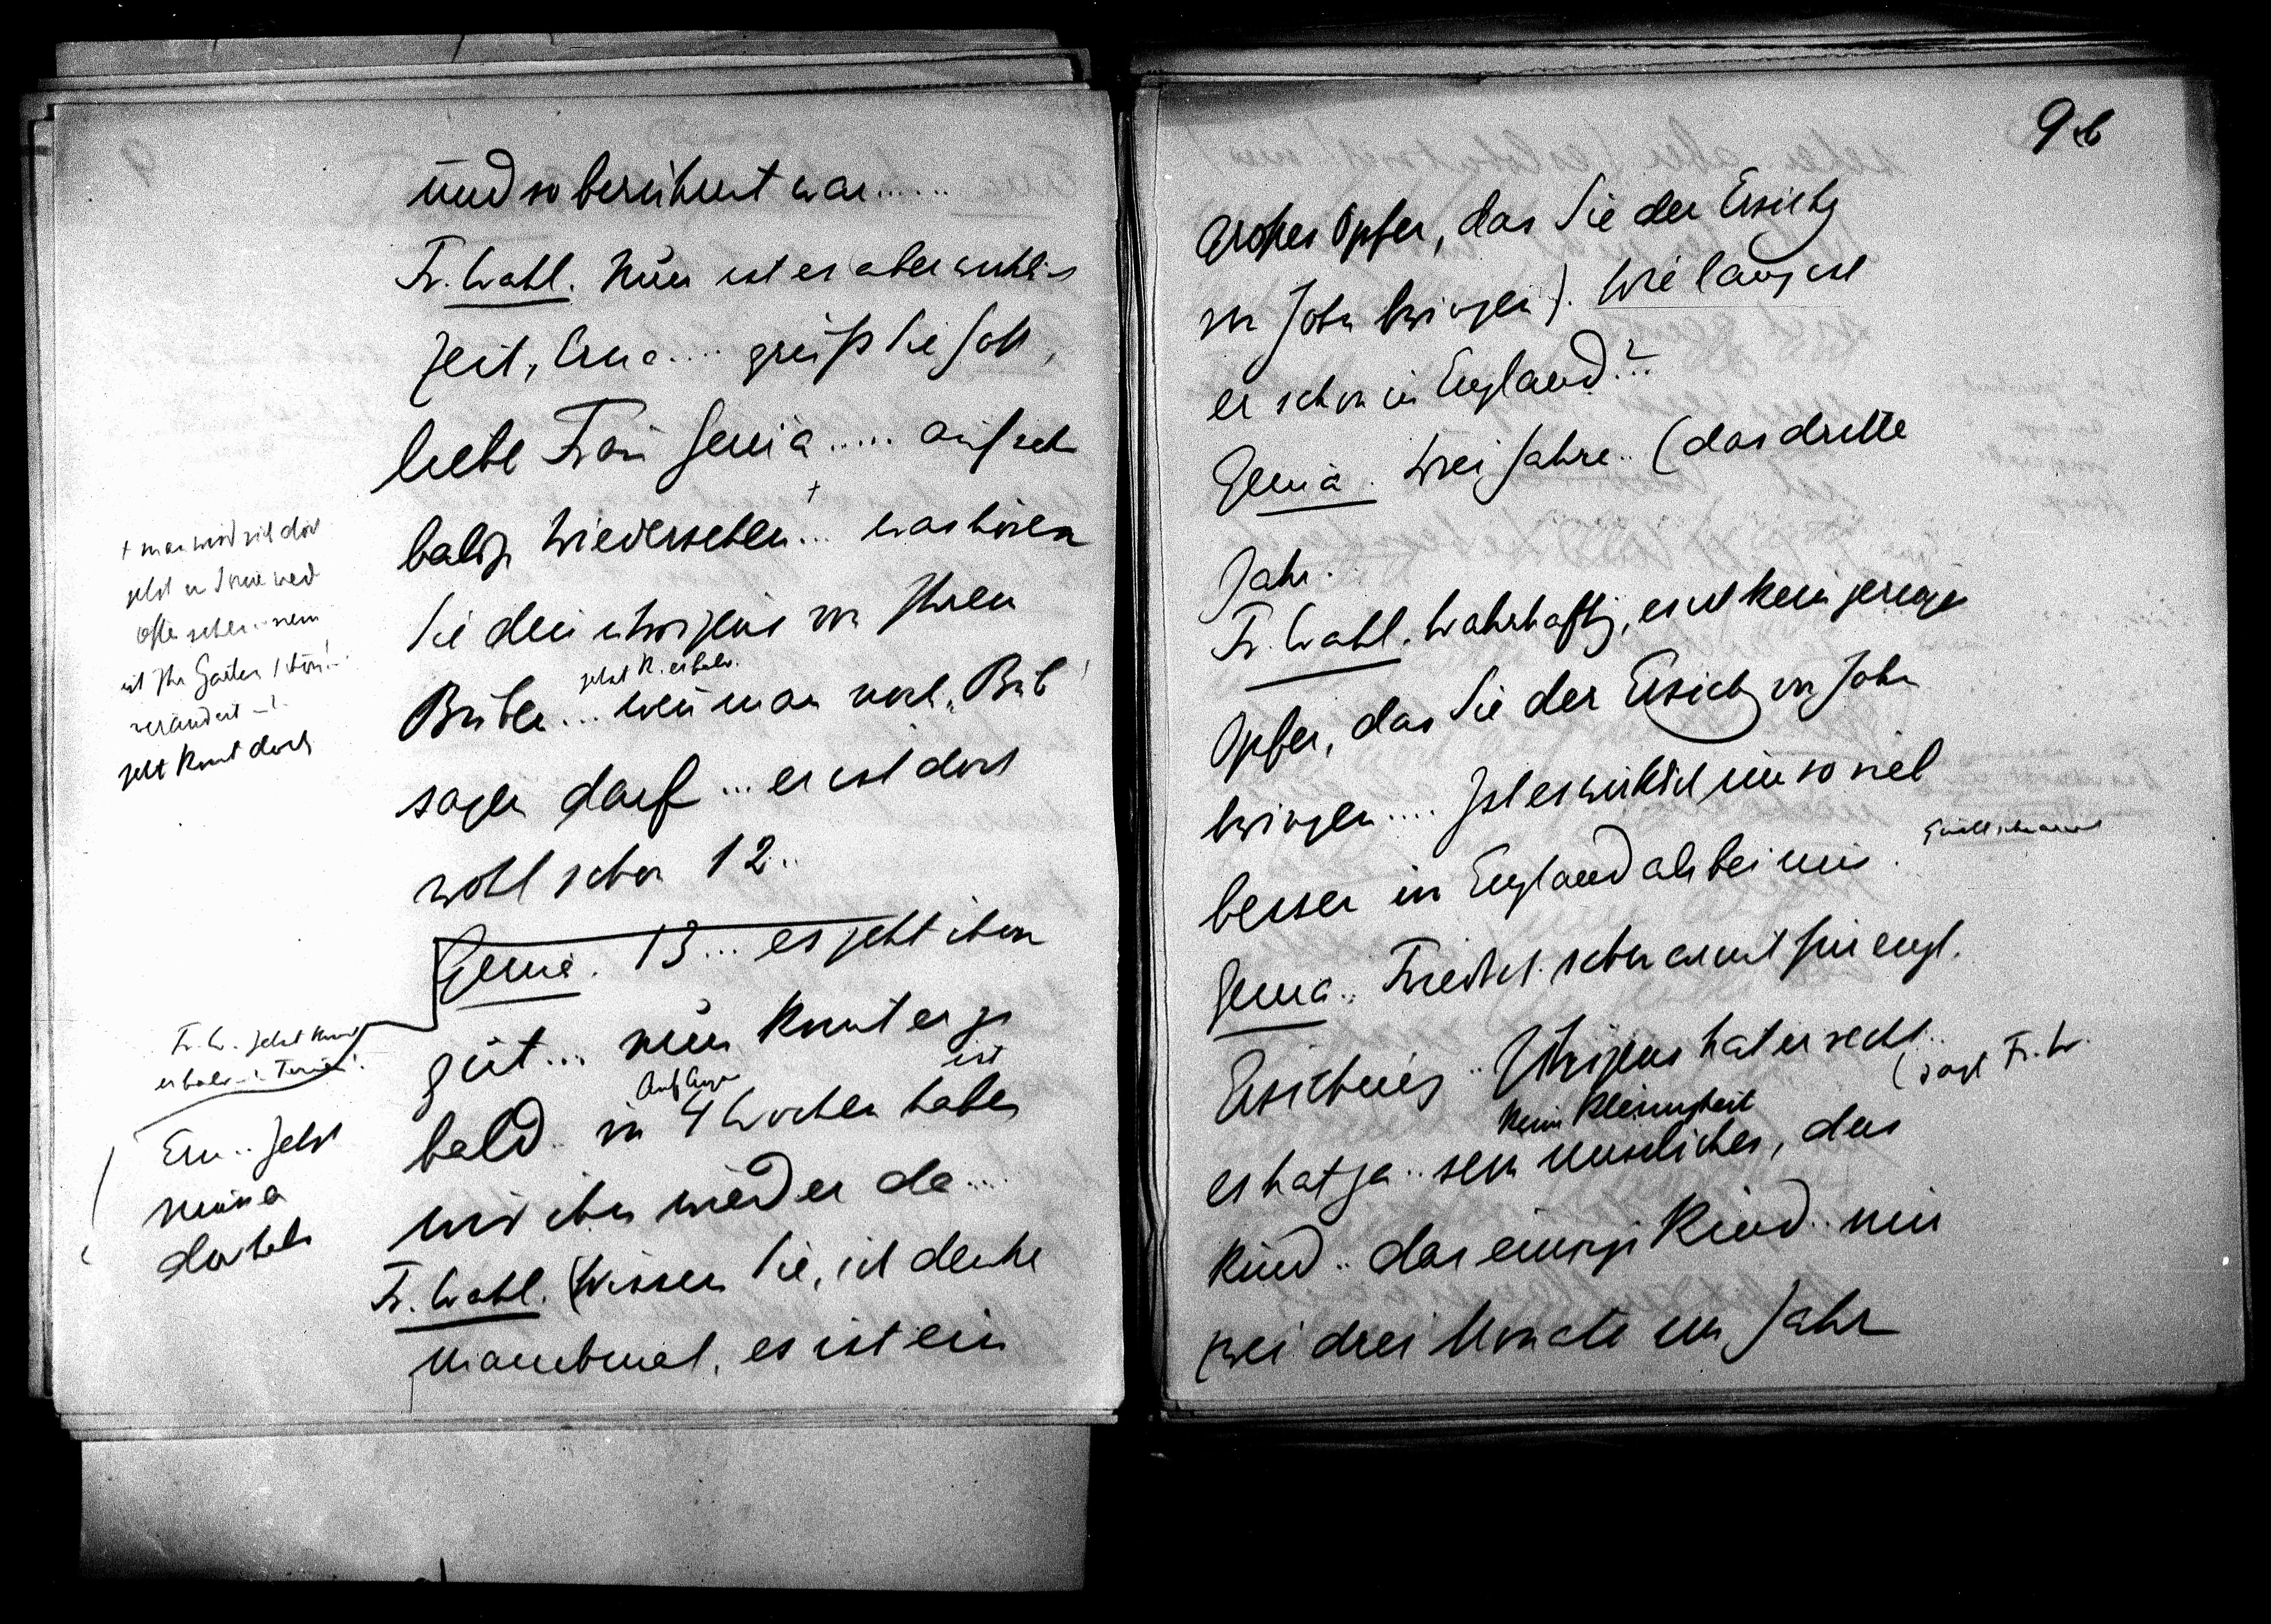 und so berühmt war......
Fr. Wahl. Nun ist es aber wirklich
Zeit, Erna.... grüß Sie Gott,
liebe Frau Genia..... auf sehr
baldiges Wiedersehen... was hören
Sie denn übrigens von Ihrem
jetzt k. er bald.
Buben... wenn man noch „Bub"
sagen darf... er ist doch
wohl schon 12..
Genia. 13... es geht ihm
gut... nun kommt er ja
bald.. in 4 Wochen haben
Anf Aug
ist
wir ihn wieder da....
Fr. Wahl. (Wissen Sie, ich denke
manchmal, es ist ein
+ man wird sich doch
jetzt in Wien
öfter sehen.. nein
ist Ihr Garten schön!..
verändert –!
jetzt kommt doch
Fr. W. Jetzt kommt
er bald
Ern.. Jetzt
9b
großes Opfer, das Sie der Erziehg
von John bringen). Wie lang ist
er schon in England?..
Genia. Zwei Jahre.. (das dritte
Jahr.
Fr. Wahl. Wahrhaftig, es ist kein geringes
Opfer, das Sie der Erziehg von John
bringen.... Ist es wirklich um so viel
besser in England als bei uns.
Genia.. Friedrich schwärmt für engl.
Erziehung.. Übrigens hat er recht..
(sagt Fr. W.
kein Kleinigkeit
es hat ja.. sein missliches, das
Kind.. das einzige Kind.. nur
zwei drei Monate im Jahr